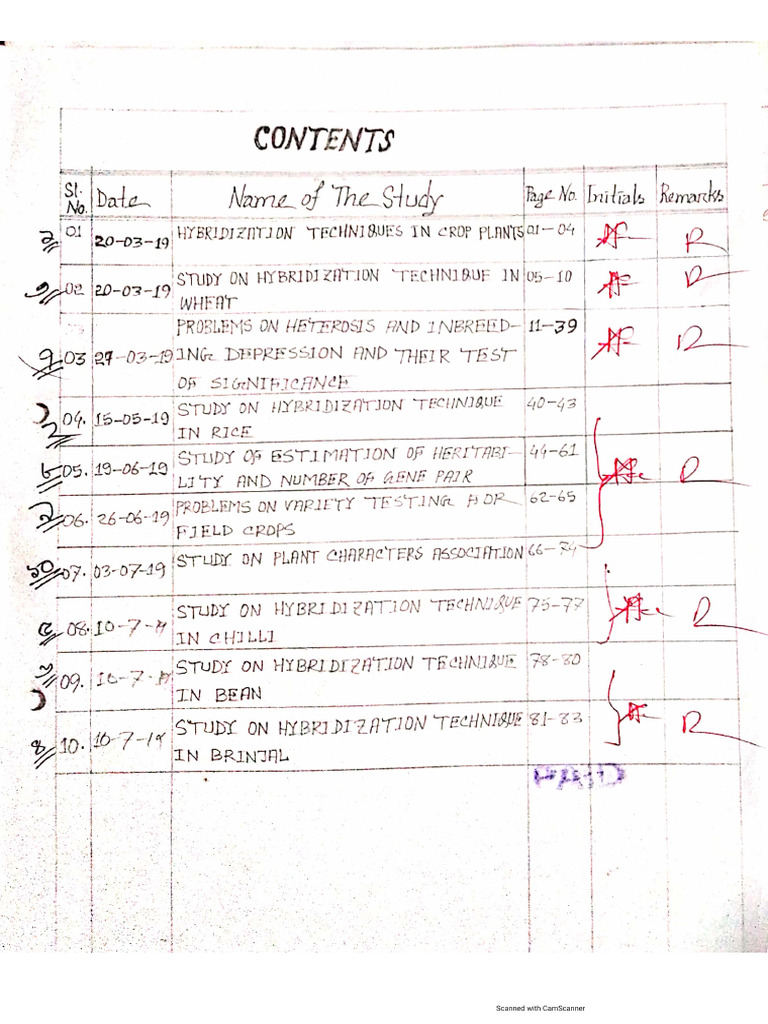 CONTENTS
Sl. No. Date Name of The Study Page No. Initials Remarks
01 20-03-19 HYBRIDIZATION TECHNIQUES IN CROP PLANTS 01-04 R
02 20-03-19 STUDY ON HYBRIDIZATION TECHNIQUE IN 05-10 R
WHEAT
PROBLEMS ON HETEROSIS AND INBREED- 11-39 R
03 27-03-19 ING DEPRESSION AND THEIR TEST
OF SIGNIFICANCE
04. 15-05-19 STUDY ON HYBRIDIZATION TECHNIQUE 40-43
IN RICE
05. 19-06-19 STUDY OF ESTIMATION OF HERITABI- 44-61 R
LITY AND NUMBER OF GENE PAIR
06. 26-06-19 PROBLEMS ON VARIETY TESTING FOR 62-65
FIELD CROPS
07. 03-07-19 STUDY ON PLANT CHARACTERS ASSOCIATION 66-74
08. 10-7-19 STUDY ON HYBRIDIZATION TECHNIQUE 75-77 R
IN CHILLI
09. 10-7-19 STUDY ON HYBRIDIZATION TECHNIQUE 78-80
IN BEAN
10. 10-7-19 STUDY ON HYBRIDIZATION TECHNIQUE 81-83 R
IN BRINJAL
PAID
Scanned with CamScanner